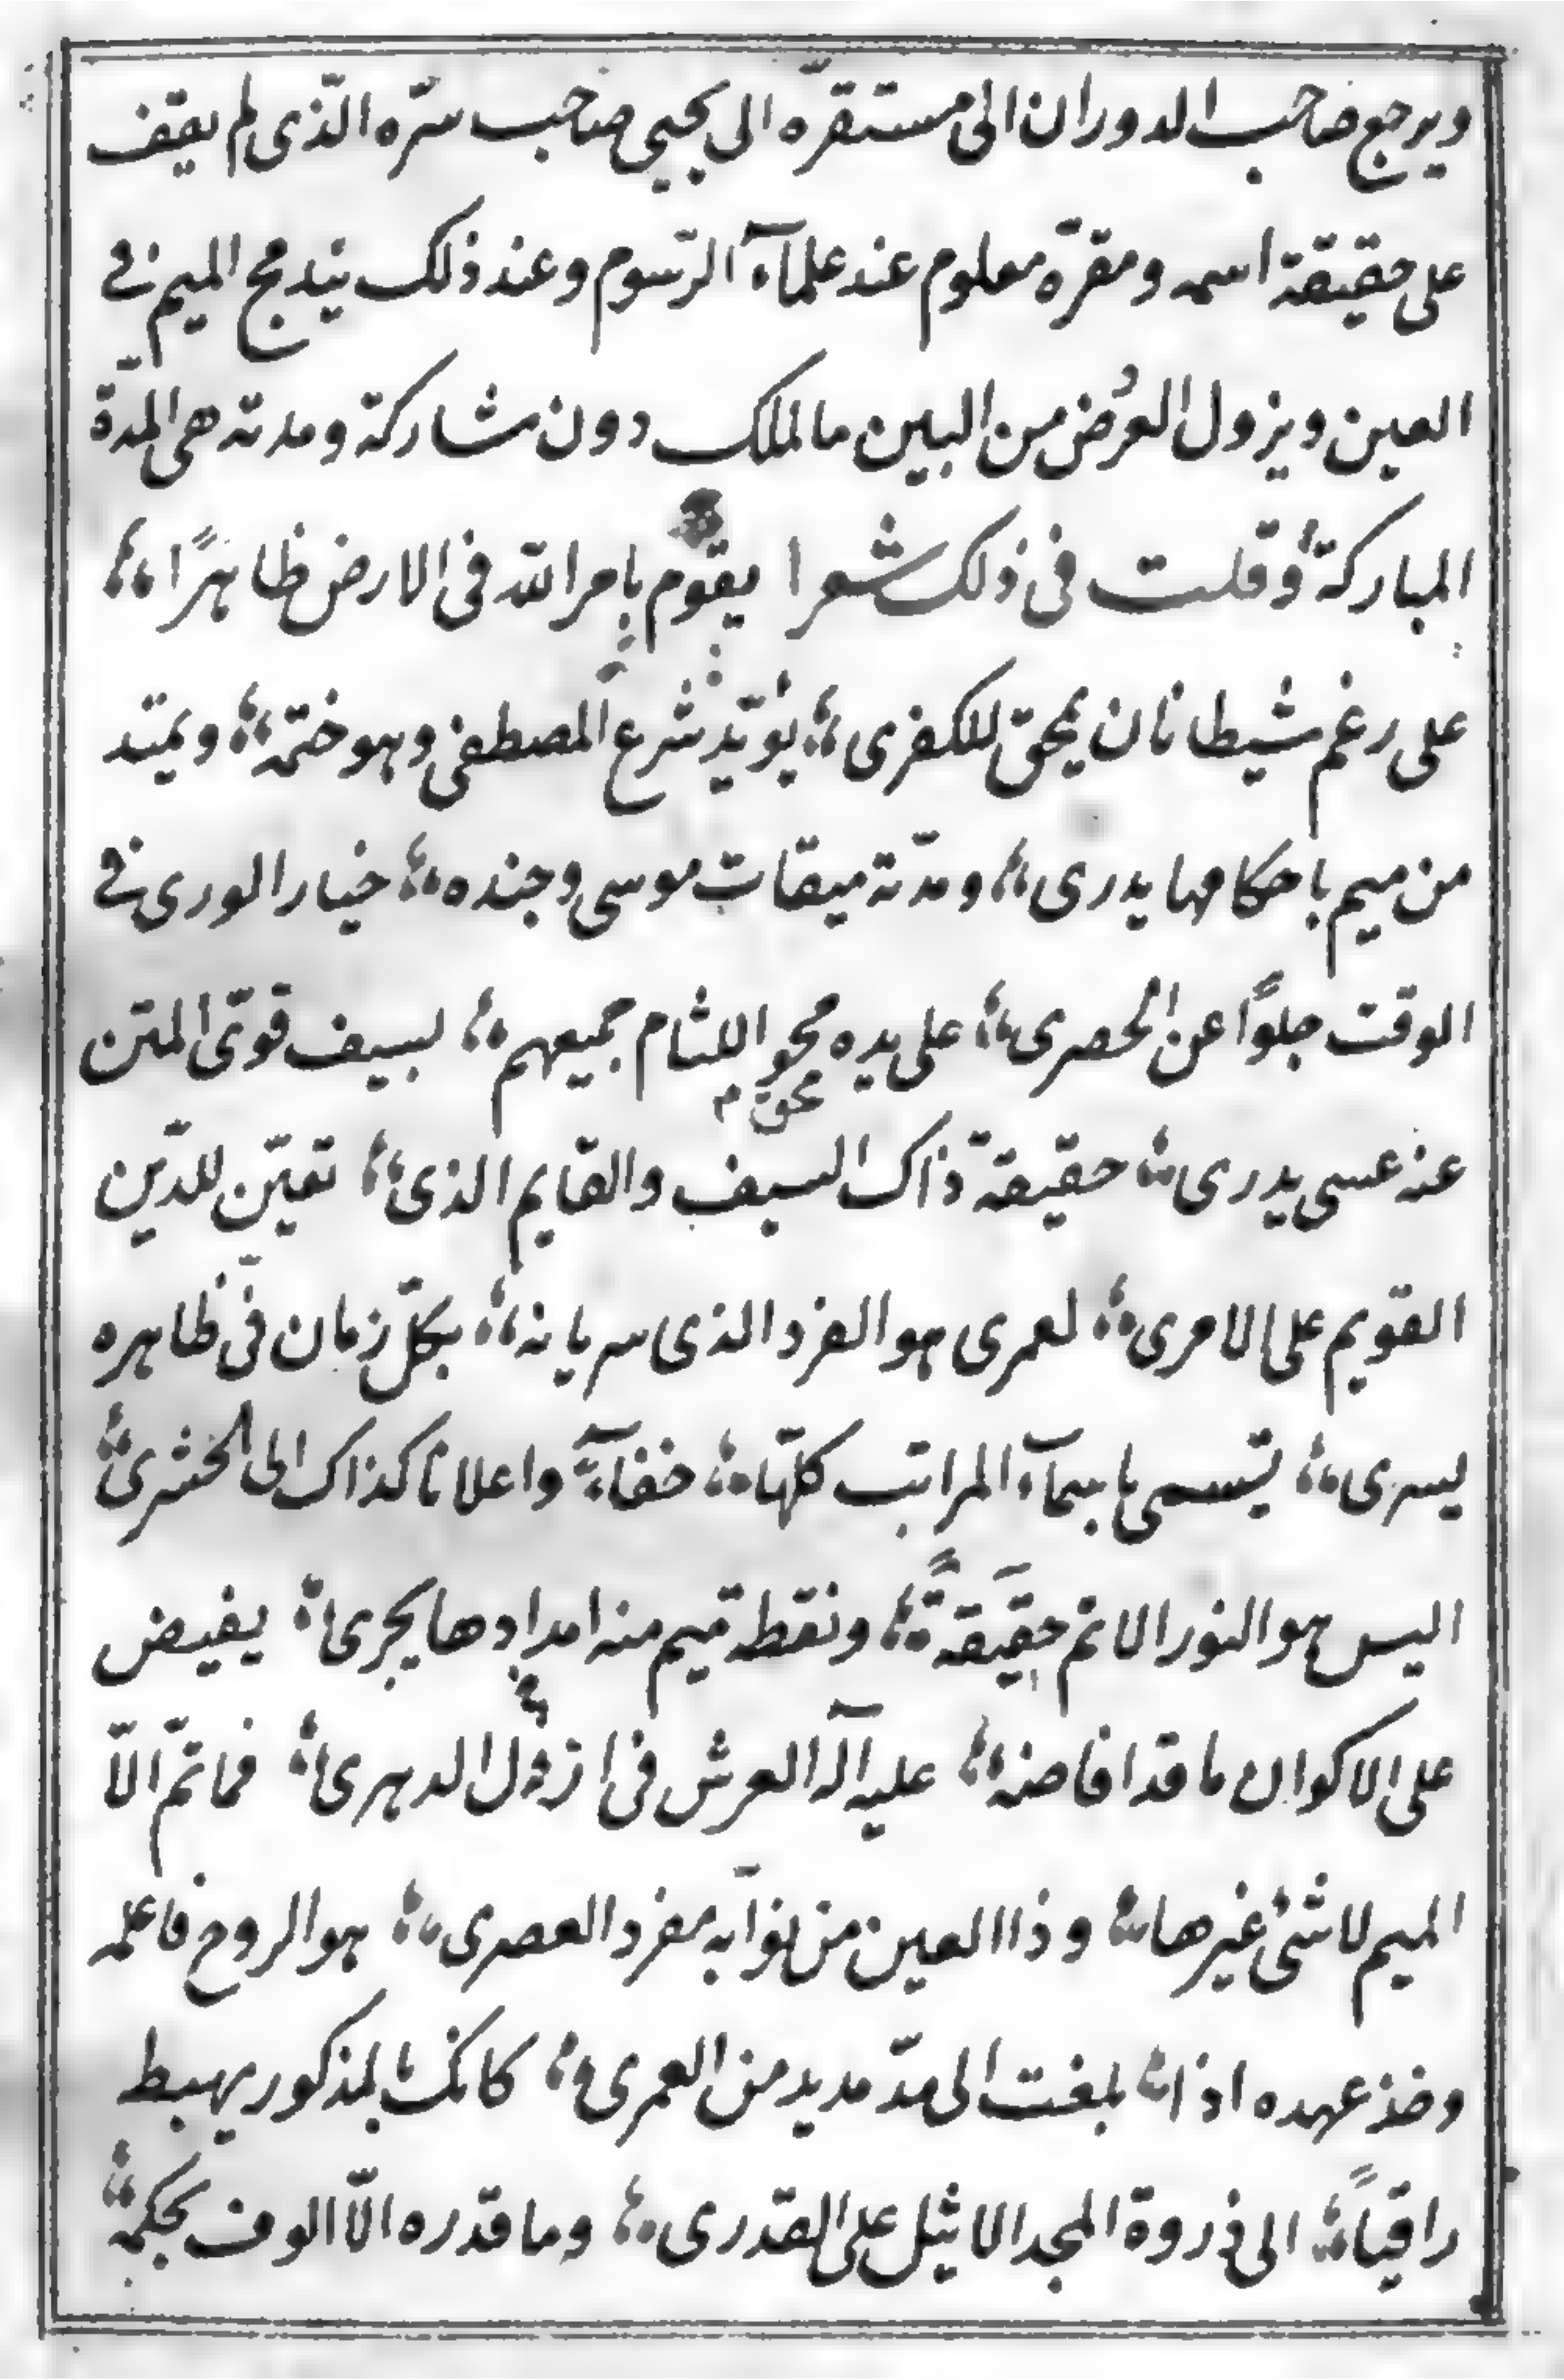 ويرجع صاحب الدوران الى مستقرّه الى يحيى صاحب سرّه الّذى لم يقف
على حقيقة اسمه ومقرّه معلوم عند علمآء الرّسوم وعند ذلك يندمج الميم فى
العين ويزول العرض من البين مالملك دون مشاركة ومدته هى المدّة
المباركة وقلت فى ذلك شعرا يقوم بامر الله فى الارض ظاهرًا ؛؛
على رغم شيطانان يمحق للكفرى ؛؛ يؤيّد شرع المصطفى وهو ختمه ؛؛ ويمتد
من ميم باحكامها يدرى ؛؛ ومدّته ميقات موسى وجنده ؛؛ خيار الورى فى
الوقت جلوًا عن الحصرى ؛؛ على يده محو اللثام جميعهم ؛؛ لسيف قوىّ المتن
محق م
عنه عسى يدرى ؛؛ حقيقة ذاك السيف والقايم الذى ؛؛ تعيّن للدّين
القويم على الامرى ؛؛ لعمرى هو الفرد الذى سريانه ؛؛ بكلّ زمان فى ظاهره
يسرى ؛؛ تسمى باسمآء المراتب كلّها ؛؛ خفآءً واعلانا كذاك الى الحشرى ؛؛
اليس هو النور الاتم حقيقةً ؛؛ ونقطه ميم منه امدادها يجرى ؛؛ يفيض
على الاكوان ما قد افاضه ؛؛ عليه آله العرش فى ازل الدهرى ؛؛ فما ثمّ الّا
الميم لا شئ غيرها ؛؛ وذا العين من نوّابه مفرد العصرى ؛؛ هو الروح فاعلمه
وخذ عهده اذا ؛؛ بلغت الى مدّ مديد من العمرى ؛؛ كانك بالمذكور يهبط
راقيًا ؛؛ الى ذروة المجد الاثيل على القدرى ؛؛ وما قدره الّا الوف بحكمة ؛؛